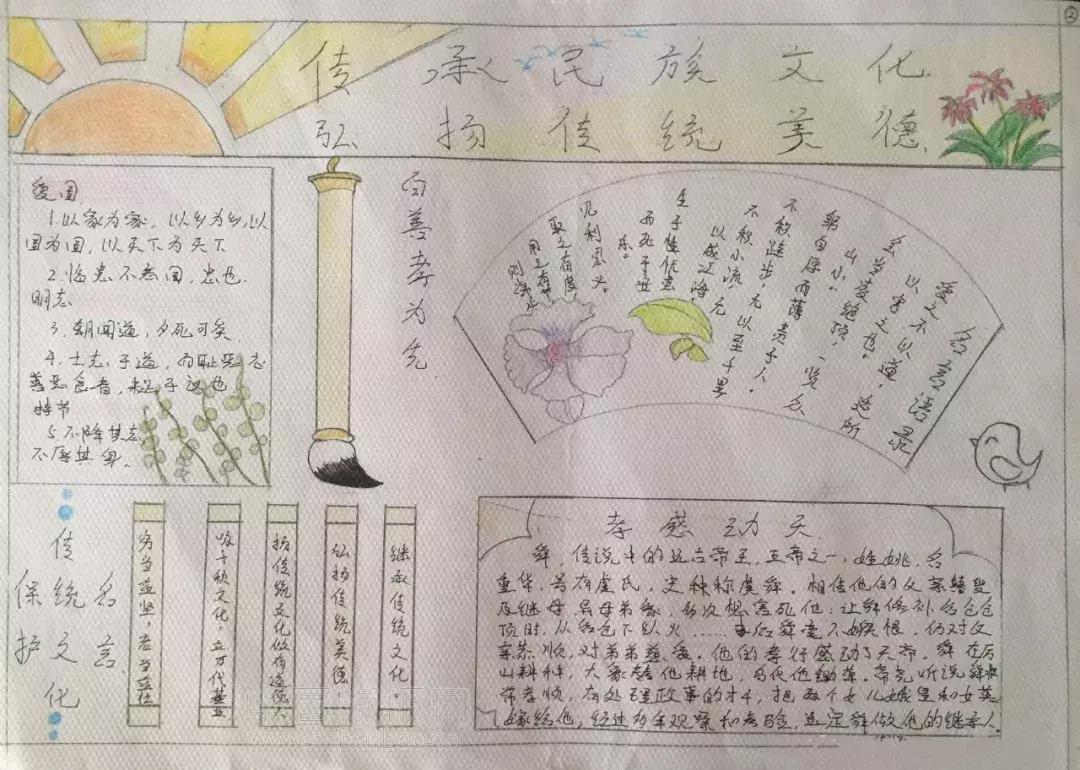 ②
传承民族文化
弘扬传统美德
爱国
1.以家为家，以乡为乡，以
国为国，以天下为天下
2.临患不忘国，忠也.
明志
3.朝闻道，夕死可矣.
4.士志于道，而耻恶衣
恶食者，未足与议也
持节
5.不降其志，
不辱其身。
百善孝为先
名言语录
爱之不以道，适所
以害之也。
会当凌绝顶，一览众
山小。
躬自厚而薄责于人。
不积跬步，无以至千里
不积小流，无
以成江海。
生于忧患
而死于安
乐。
见利思义。
取之有度
用之有节
则常足
传统文化
保护
名言
穷当益坚，老当益壮
咏千秋文化，立万代基业
扬传统文化做有道德人
弘扬传统美德，
继承传统文化。
孝感动天
舜，传说中的远古帝王，五帝之一，姓姚，名
重华，号有虞氏，史称虞舜。相传他的父亲瞽叟
及继母、异母弟象，多次想害死他：让舜修补谷仓仓
顶时，从谷仓下纵火……事后舜毫不嫉恨，仍对父
亲恭顺，对弟弟慈爱。他的孝行感动了天帝。舜在历
山耕种，大象替他耕地，鸟代他锄草。帝尧听说舜非
常孝顺，有处理政事的才干，把两个女儿娥皇和女英
嫁给他；经过多年观察和考验，选定舜做他的继承人